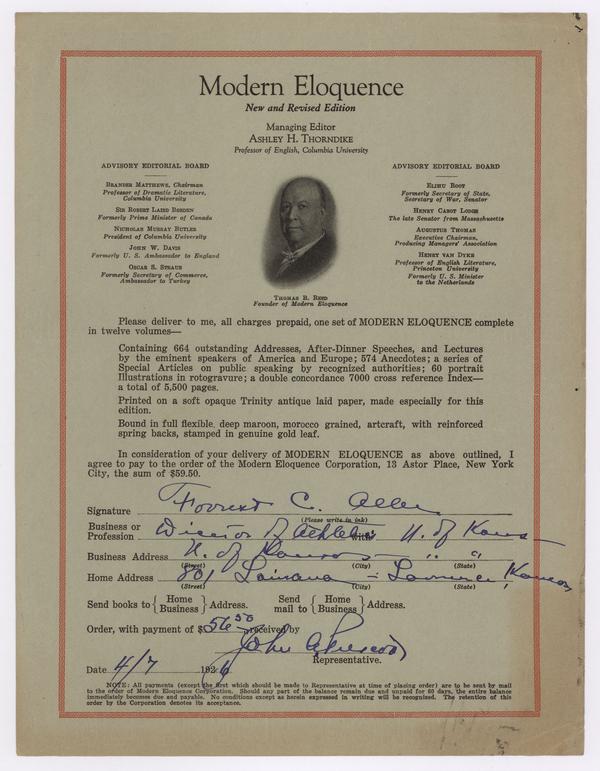 Modern Eloquence
New and Revised Edition
Managing Editor
ASHLEY H. THORNDIKE
Professor of English, Columbia University
ADVISORY EDITORIAL BOARD
BRANDER MATTHEWS, Chairman
Professor of Dramatic Literature,
Columbia University
SIR ROBERT LAIRD BORDEN
Formerly Prime Minister of Canada
NICHOLAS MURRAY BUTLER
President of Columbia University
JOHN W. DAVIS
Formerly U. S. Ambassador to England
OSCAR S. STRAUS
Formerly Secretary of Commerce,
Ambassador to Turkey
ADVISORY EDITORIAL BOARD
ELIHU ROOT
Formerly Secretary of State,
Secretary of War, Senator
HENRY CABOT LODGE
The late Senator from Massachusetts
AUGUSTUS THOMAS
Executive Chairman,
Producing Managers' Association
HENRY VAN DYKE
Professor of English Literature,
Princeton University
Formerly U. S. Minister
to the Netherlands
THOMAS B. REED
Founder of Modern Eloquence
Please deliver to me, all charges prepaid, one set of MODERN ELOQUENCE complete
in twelve volumes—
Containing 664 outstanding Addresses, After-Dinner Speeches, and Lectures
by the eminent speakers of America and Europe; 574 Anecdotes; a series of
Special Articles on public speaking by recognized authorities; 60 portrait
Illustrations in rotogravure; a double concordance 7000 cross reference Index—
a total of 5,500 pages.
Printed on a soft opaque Trinity antique laid paper, made especially for this
edition.
Bound in full flexible, deep maroon, morocco grained, artcraft, with reinforced
spring backs, stamped in genuine gold leaf.
In consideration of your delivery of MODERN ELOQUENCE as above outlined, I
agree to pay to the order of the Modern Eloquence Corporation, 13 Astor Place, New York
City, the sum of $59.50.
Signature Forrest C. Allen
(Please write in ink)
Business or
Profession Director of Athletics With U. of Kans
Business Address U. of Kansas — " "
(Street) (City) (State)
Home Address 801 Louisiana – Lawrence, Kansas
(Street) (City) (State)
Send books to { Home Business } Address. Send mail to { Home Business } Address.
Order, with payment of $56 50 received by
John
Representative.
Date 4/7 192
NOTE: All payments (except the first which should be made to Representative at time of placing order) are to be sent by mail
to the order of Modern Eloquence Corporation. Should any part of the balance remain due and unpaid for 60 days, the entire balance
immediately becomes due and payable. No conditions except as herein expressed in writing will be recognized. The retention of this
order by the Corporation denotes its acceptance.